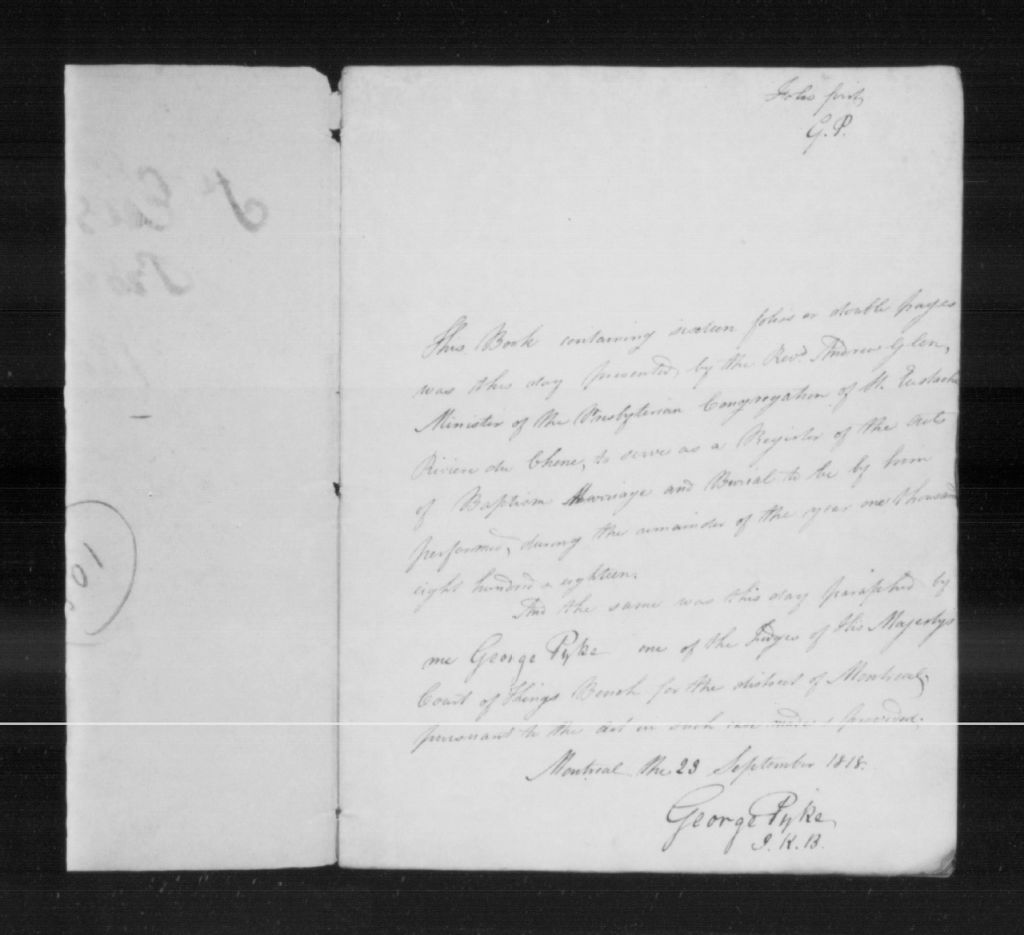 Folio first
G. P.
This Book containing sixteen folios or double pages
was this day presented, by the Revd. Andrew Glen,
Minister of the Presbyterian Congregation of St. Eustache
Riviere du Chene, to serve as a Register of the acts
of Baptism Marriage and Burial to be by him
performed, during the remainder of the year one thousand
eight hundred & eighteen.
And the same was this day paraphed by
me George Pyke one of the Judges of His Majestys
Court of Kings Bench for the district of Montreal,
pursuant to the act in such case made & provided.
Montreal the 23 September 1818.
George Pyke
J. K. B.
10